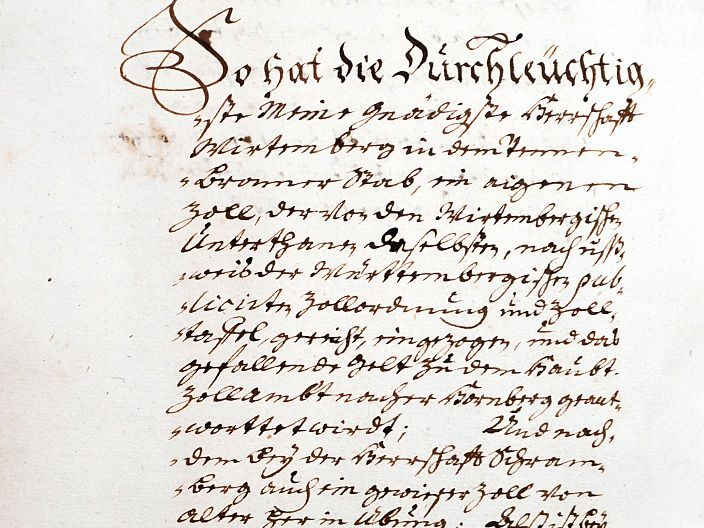 So hat die Durchleüchtig-
-ste Meine Gnädigste Herrschafft
Wirtemberg in dem Tennen-
-bronner Stab, ein aigenen
Zoll, der von den Wirtembergischen
Unterthanen daselbsten, nach usß-
-weis der Württembergischen pub-
-licirten Zollordnung und Zoll-
-taffel, gereicht, eingezogen, und das
gefallende Gelt zu dem Haubt-
Zollambt nacher Hornberg geant-
-worttet wirdt; Und nach-
-dem bey der Herrschafft Schram-
-berg auch ein gewieser Zoll von
alter her in Übung; Alß ist bey